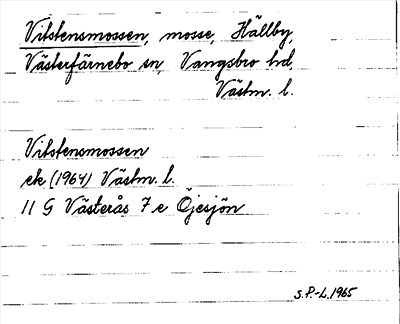 Vitstensmossen, mosse, Hällby,
Västerfärnebo sn, Vangsbro hd,
Västm. l.
Vitstensmossen
ek (1964) Västm. l.
11 G Västerås 7 e Öjesjön
S.P.-L. 1965